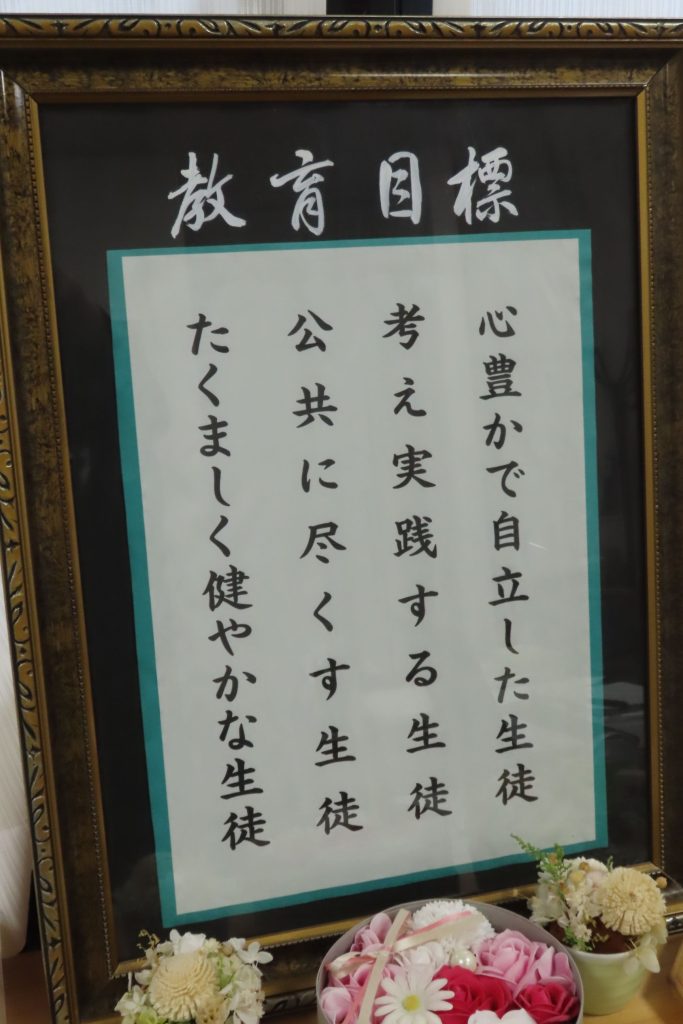 教育目標
心豊かで自立した生徒
考え実践する生徒
公共に尽くす生徒
たくましく健やかな生徒